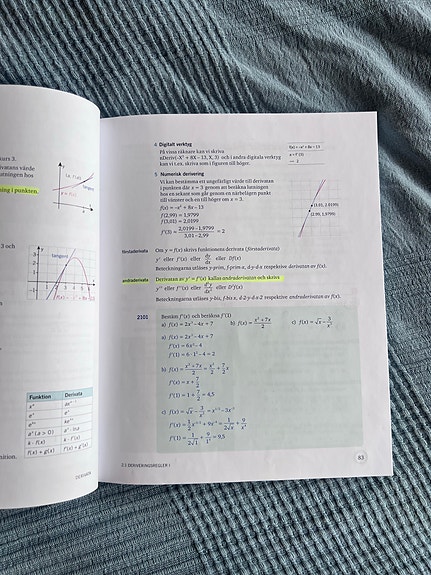 kurs 3.
ivatans värde
utningen hos
ning i punkten.
tangent
3 och
y
tangent
x
Funktion Derivata
xᵃ axᵃ⁻¹
eˣ eˣ
eᵏˣ keᵏˣ
aˣ (a > 0) aˣ · ln a
k · f(x) k · f'(x)
f(x) + g(x) f'(x) + g'(x)
nition.
DERIVATA
4 Digitalt verktyg
På vissa räknare kan vi skriva
nDeriv(-X² + 8X – 13, X, 3) och i andra digitala verktyg
kan vi t.ex. skriva som i figuren till höger.
f(x) = -x² + 8x – 13
→ 2
5 Numerisk derivering
Vi kan bestämma ett ungefärligt värde till derivatan
i punkten där x = 3 genom att beräkna lutningen
hos en sekant som går genom en närbelägen punkt
till vänster och en till höger om x = 3.
f(x) = –x² + 8x – 13
f(2,99) = 1,9799
f(3,01) = 2,0199
f'(3) ≈ (2,0199 – 1,9799)/(3,01 – 2,99) = 2
(3.01, 2.0199)
(2.99, 1.9799)
förstaderivata Om y = f(x) skrivs funktionens derivata (förstaderivata)
y' eller f'(x) eller dy/dx eller Df(x)
Beteckningarna utläses y-prim, f-prim-x, d-y-d-x respektive derivatan av f(x).
andraderivata Derivatan av y' = f'(x) kallas andraderivatan och skrivs
y'' eller f''(x) eller d²y/dx² eller D²f(x)
Beteckningarna utläses y-bis, f-bis x, d-2-y-d-x-2 respektive andraderivatan av f(x).
2101 Bestäm f'(x) och beräkna f'(1)
a) f(x) = 2x³ – 4x + 7 b) f(x) = (x² + 7x)/2 c) f(x) = √x – 3/x³
a) f(x) = 2x³ – 4x + 7
f'(x) = 6x² – 4
f'(1) = 6 · 1² – 4 = 2
b) f(x) = (x² + 7x)/2 = x²/2 + 7/2 x
f'(x) = x + 7/2
f'(1) = 1 + 7/2 = 4,5
c) f(x) = √x – 3/x³ = x^(1/2) – 3x⁻³
f'(x) = 1/2 x^(-1/2) + 9x⁻⁴ = 1/(2√x) + 9/x⁴
f'(1) = 1/(2√1) + 9/1⁴ = 9,5
2.1 DERIVERINGSREGLER I
83